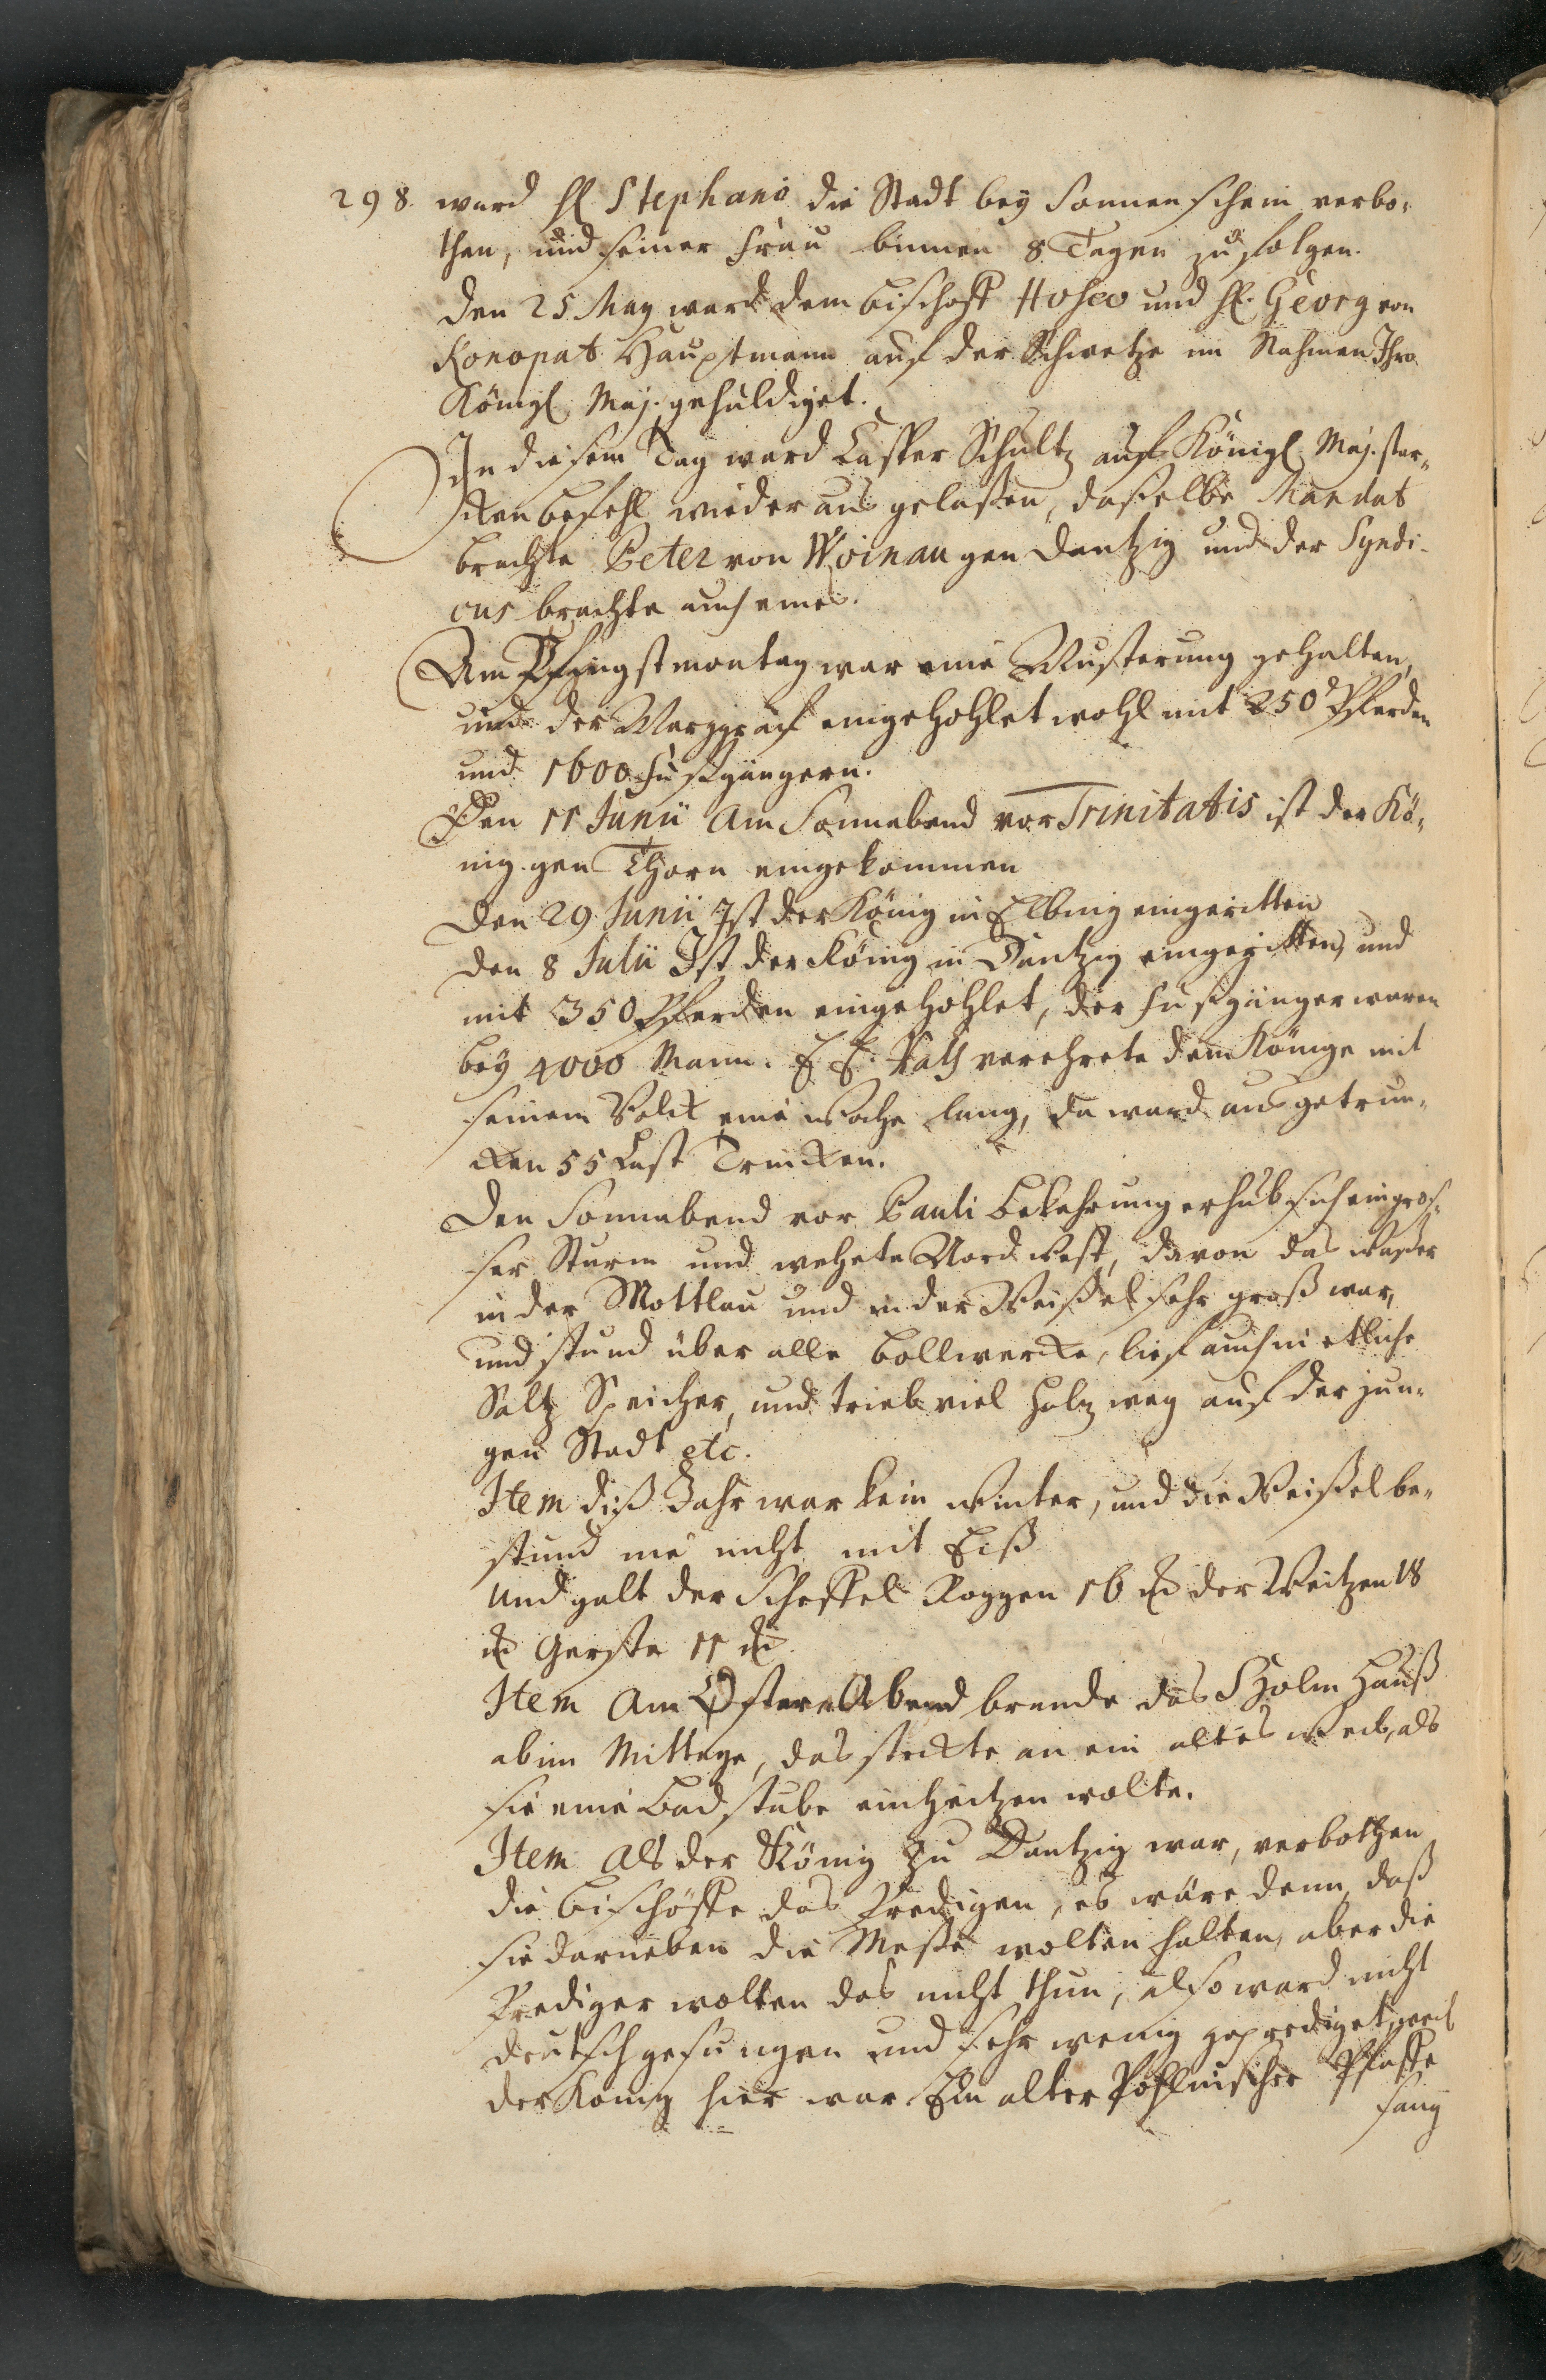 298. ward H. Stephano die Stadt bey Sonnenschein verbo-
then, und seiner Frau binnen 8 Tagen zu folgen.
Den 25 May ward dem Bischoff Hoseo und H. Georg von
Konopat Hauptmann auf der Schwetze im Nahmen Ihro
Königl. Maj. gehuldiget.
In diesem Tag ward Casper Schultz auf Königl. Maj. star-
cken befehl wieder aus gelaßen, daßelbe Mandat
brachte Peter von Woinau gen Dantzig und der Syndi-
cus brachte auch eines.
Am Pfingstmontag war eine Musterung gehalten,
und der Marggraf eingehohlet wohl mit 250 Pferden
und 1600 Fußgängern.
Den 11 Junii Am Sonnabend vor Trinitatis ist der Kö-
nig gen Thorn eingekommen
Den 29 Junii Ist der König in Elbing eingeritten
Den 8 Julii Ist der König in Dantzig eingeritten, und
mit 350 Pferden eingehohlet, der Fußgänger waren
bey 4000 Mann. E. E. Rath verehrete dem Könige mit
seinem Volck eine Woche lang, da ward ausgetrun-
cken 55 Last Trincken.
Den Sonnabend vor Pauli Bekehrung erhub sich ein gros-
ser Sturm und wehete Nord West, davon das Waßer
in der Mottlau und in der Weißel sehr groß war,
und stund über alle Bollwercke, lief auch in etliche
Saltz Speicher, und trieb viel Holz weg auf der jun-
gen Stadt etc.
Item diß Jahr war kein Winter, und die Weißel be-
stund nie nicht mit Eiß
Und galt der Scheffel Roggen 16 der Weitzen 18
Gerste 11
Item Am Oster Abend brande das Holm Hauß
ab im Mittage, das steckte an ein altes Weib, als
sie eine Badstube einheitzen wolte.
Item Als der König zu Dantzig war, verbothen
die Bischöffe das Predigen, es wäre denn, daß
sie darneben die Meße wolten halten, aber die
Prediger wolten das nicht thun, also ward nicht
deutsch gesungen und sehr wenig geprediget, weil
der König hier war. Ein alter Pohlnischer Pfaffe
sang